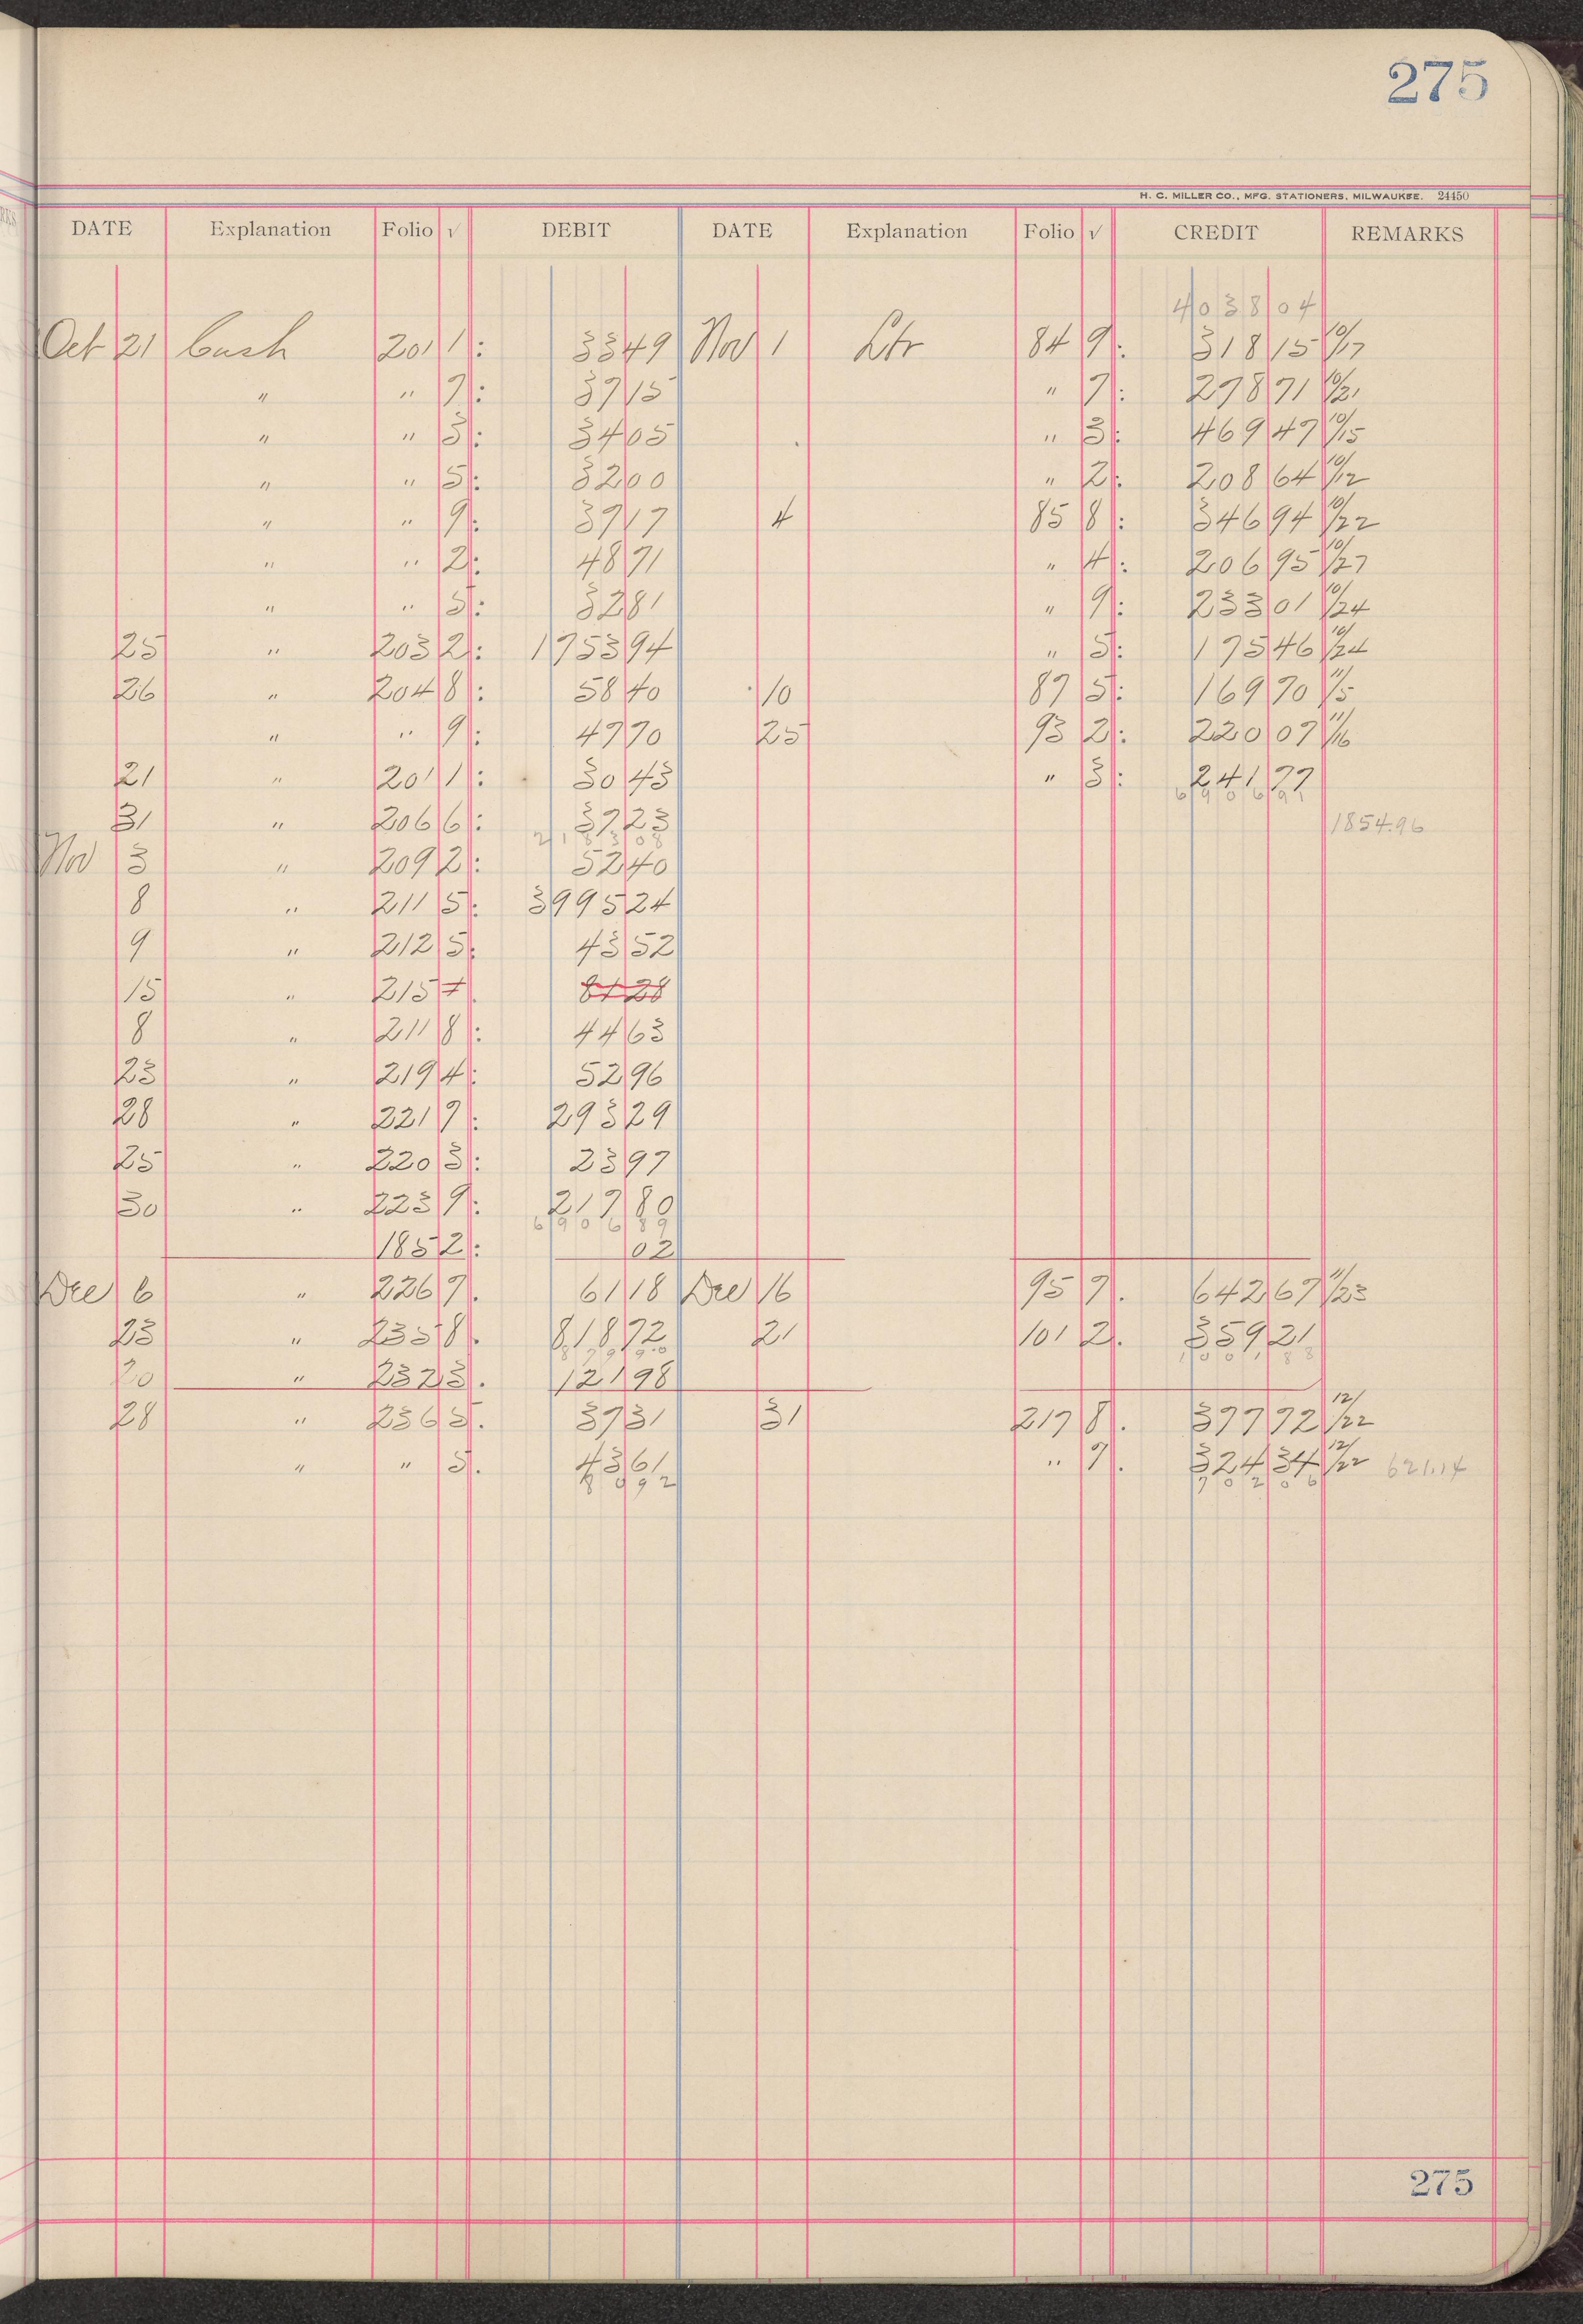 275
H. C. MILLER CO., MFG. STATIONERS, MILWAUKEE. 24450
DATE Explanation Folio √ DEBIT DATE Explanation Folio √ CREDIT REMARKS
4038 04
Oct 21 Cash 201 1: 33 49 Nov 1 Ltr 84 9: 318 15 10/17
" " 7: 37 15 " 7: 278 71 10/21
" " 3: 34 05 " 3: 469 47 10/15
" " 5: 32 00 " 2: 208 64 10/12
" " 9: 39 17 4 85 8: 346 94 10/22
" " 2: 48 71 " 4: 206 95 10/27
" " 5: 32 81 " 9: 233 01 10/24
25 " 203 2: 1753 94 " 5: 175 46 10/24
26 " 204 8: 58 40 10 87 5: 169 70 11/5
" " 9: 47 70 25 93 2: 220 07 11/16
21 " 201 1: 30 43 " 3: 241 77
6906 91
31 " 206 6: 37 23 1854.96
2183 08
Nov 3 " 209 2: 52 40
8 " 211 5: 3995 24
9 " 212 5: 43 52
15 " 215 7. 81 28
8 " 211 8: 44 63
23 " 219 4: 52 96
28 " 221 7: 293 29
25 " 220 3: 23 97
30 " 223 9: 217 80
6906 89
185 2: 02
Dec 6 " 226 7. 61 18 Dec 16 95 7. 642 67 11/23
23 " 235 8. 818 72 21 101 2. 359 21
879 90 1001 88
20 " 232 3. 121 98
28 " 236 5. 37 31 31 217 8. 377 72 12/22
" " 5. 43 61 " 7. 324 34 12/22 621.14
80 92 702 06
275